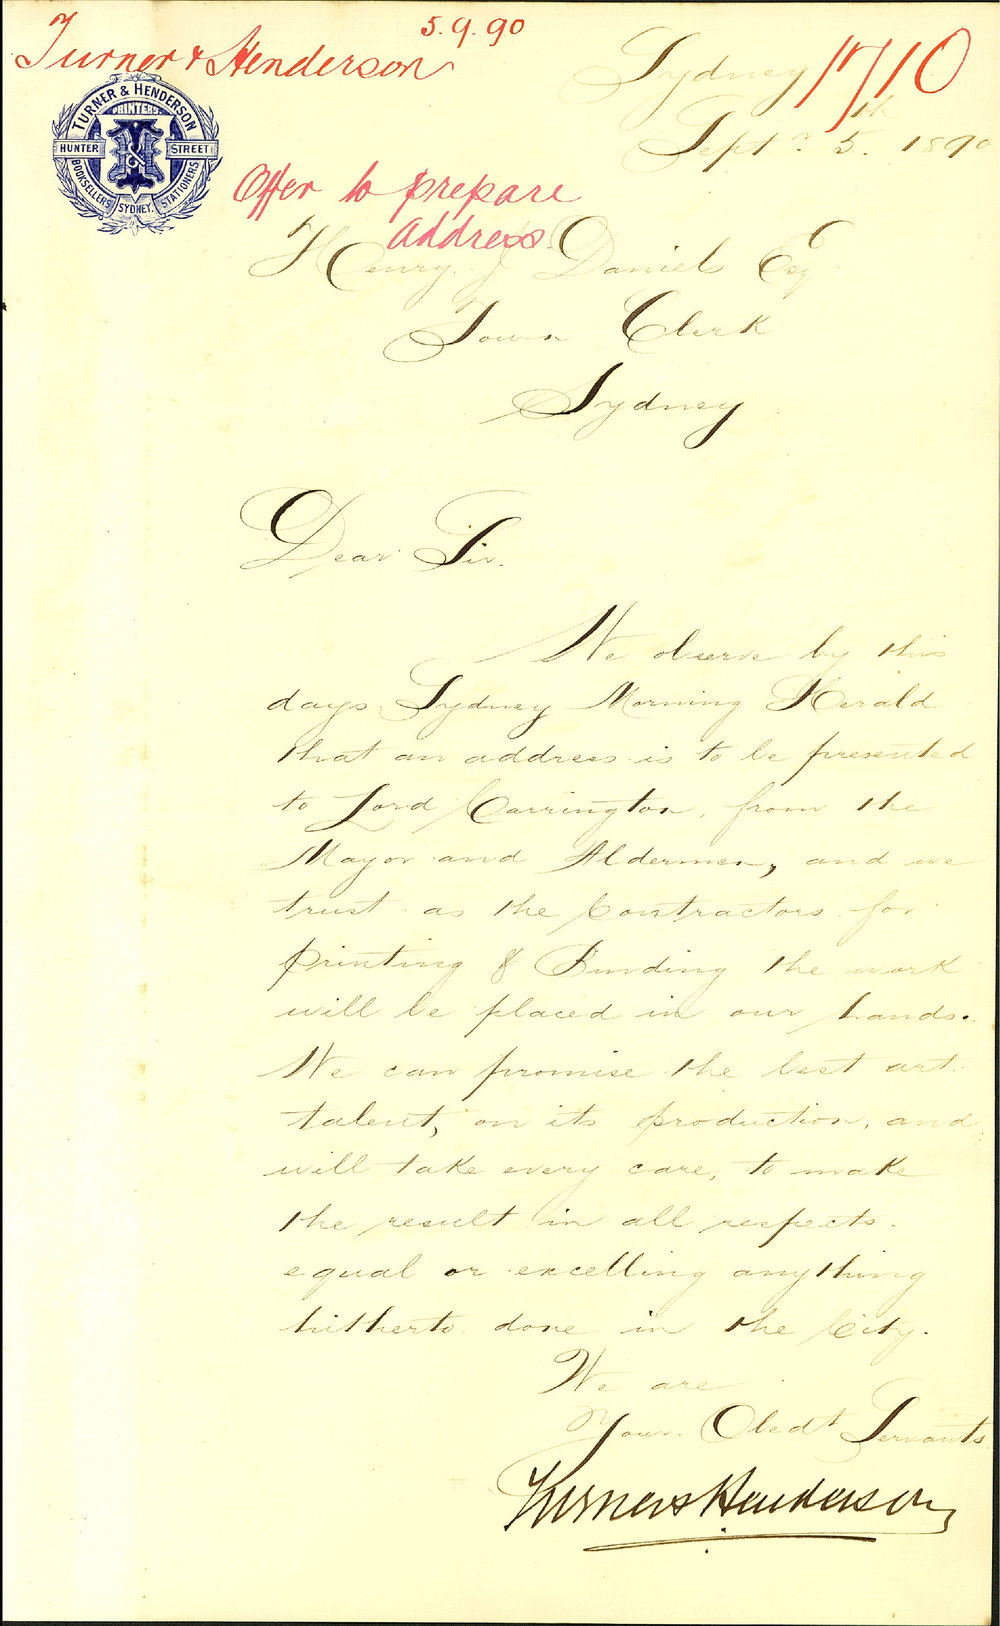 5.9.90
Turner & Henderson
1710
Sydney
Septr. 5th 1890
TURNER & HENDERSON
PRINTERS.
T & H
HUNTER STREET
BOOKSELLERS SYDNEY. STATIONERS
Offer to prepare
address.
Henry. J Daniels Esq
Town Clerk
Sydney
Dear Sir.
We observe by this
days Sydney Morning Herald
that an address is to be presented
to Lord Carrington, from the
Mayor and Aldermen, and we
trust as the Contractors for
printing & Binding the work
will be placed in our hands.
We can promise the best art
talent, on its production, and
will take every care, to make
the result in all respects.
equal or excelling anything
hitherto done in the City.
We are
Your Obedt Servants
Turner & Henderson